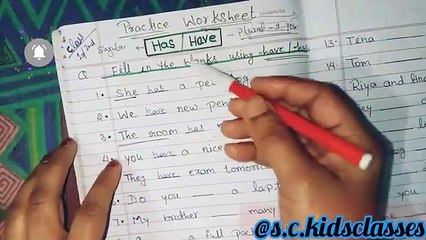 Practice Worksheet
Class
1st and 2nd
Singular
Has / Have
Plural
Q Fill in the blanks using have /
1. She has a pet
2. We have new pen
3. The room has
4. you have a nice
They have exam tomorrow
6. Do you a lap
7. My brother many
a full pac
13. Tena
14. Tom
Riya and
@s.c.kidsclasses